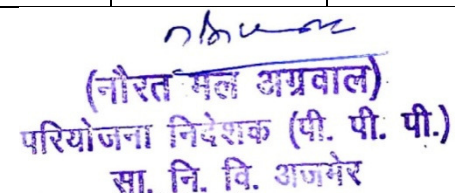 (नौरत मल अग्रवाल)
परियोजना निदेशक (पी. पी. पी.)
सा. नि. वि. अजमेर